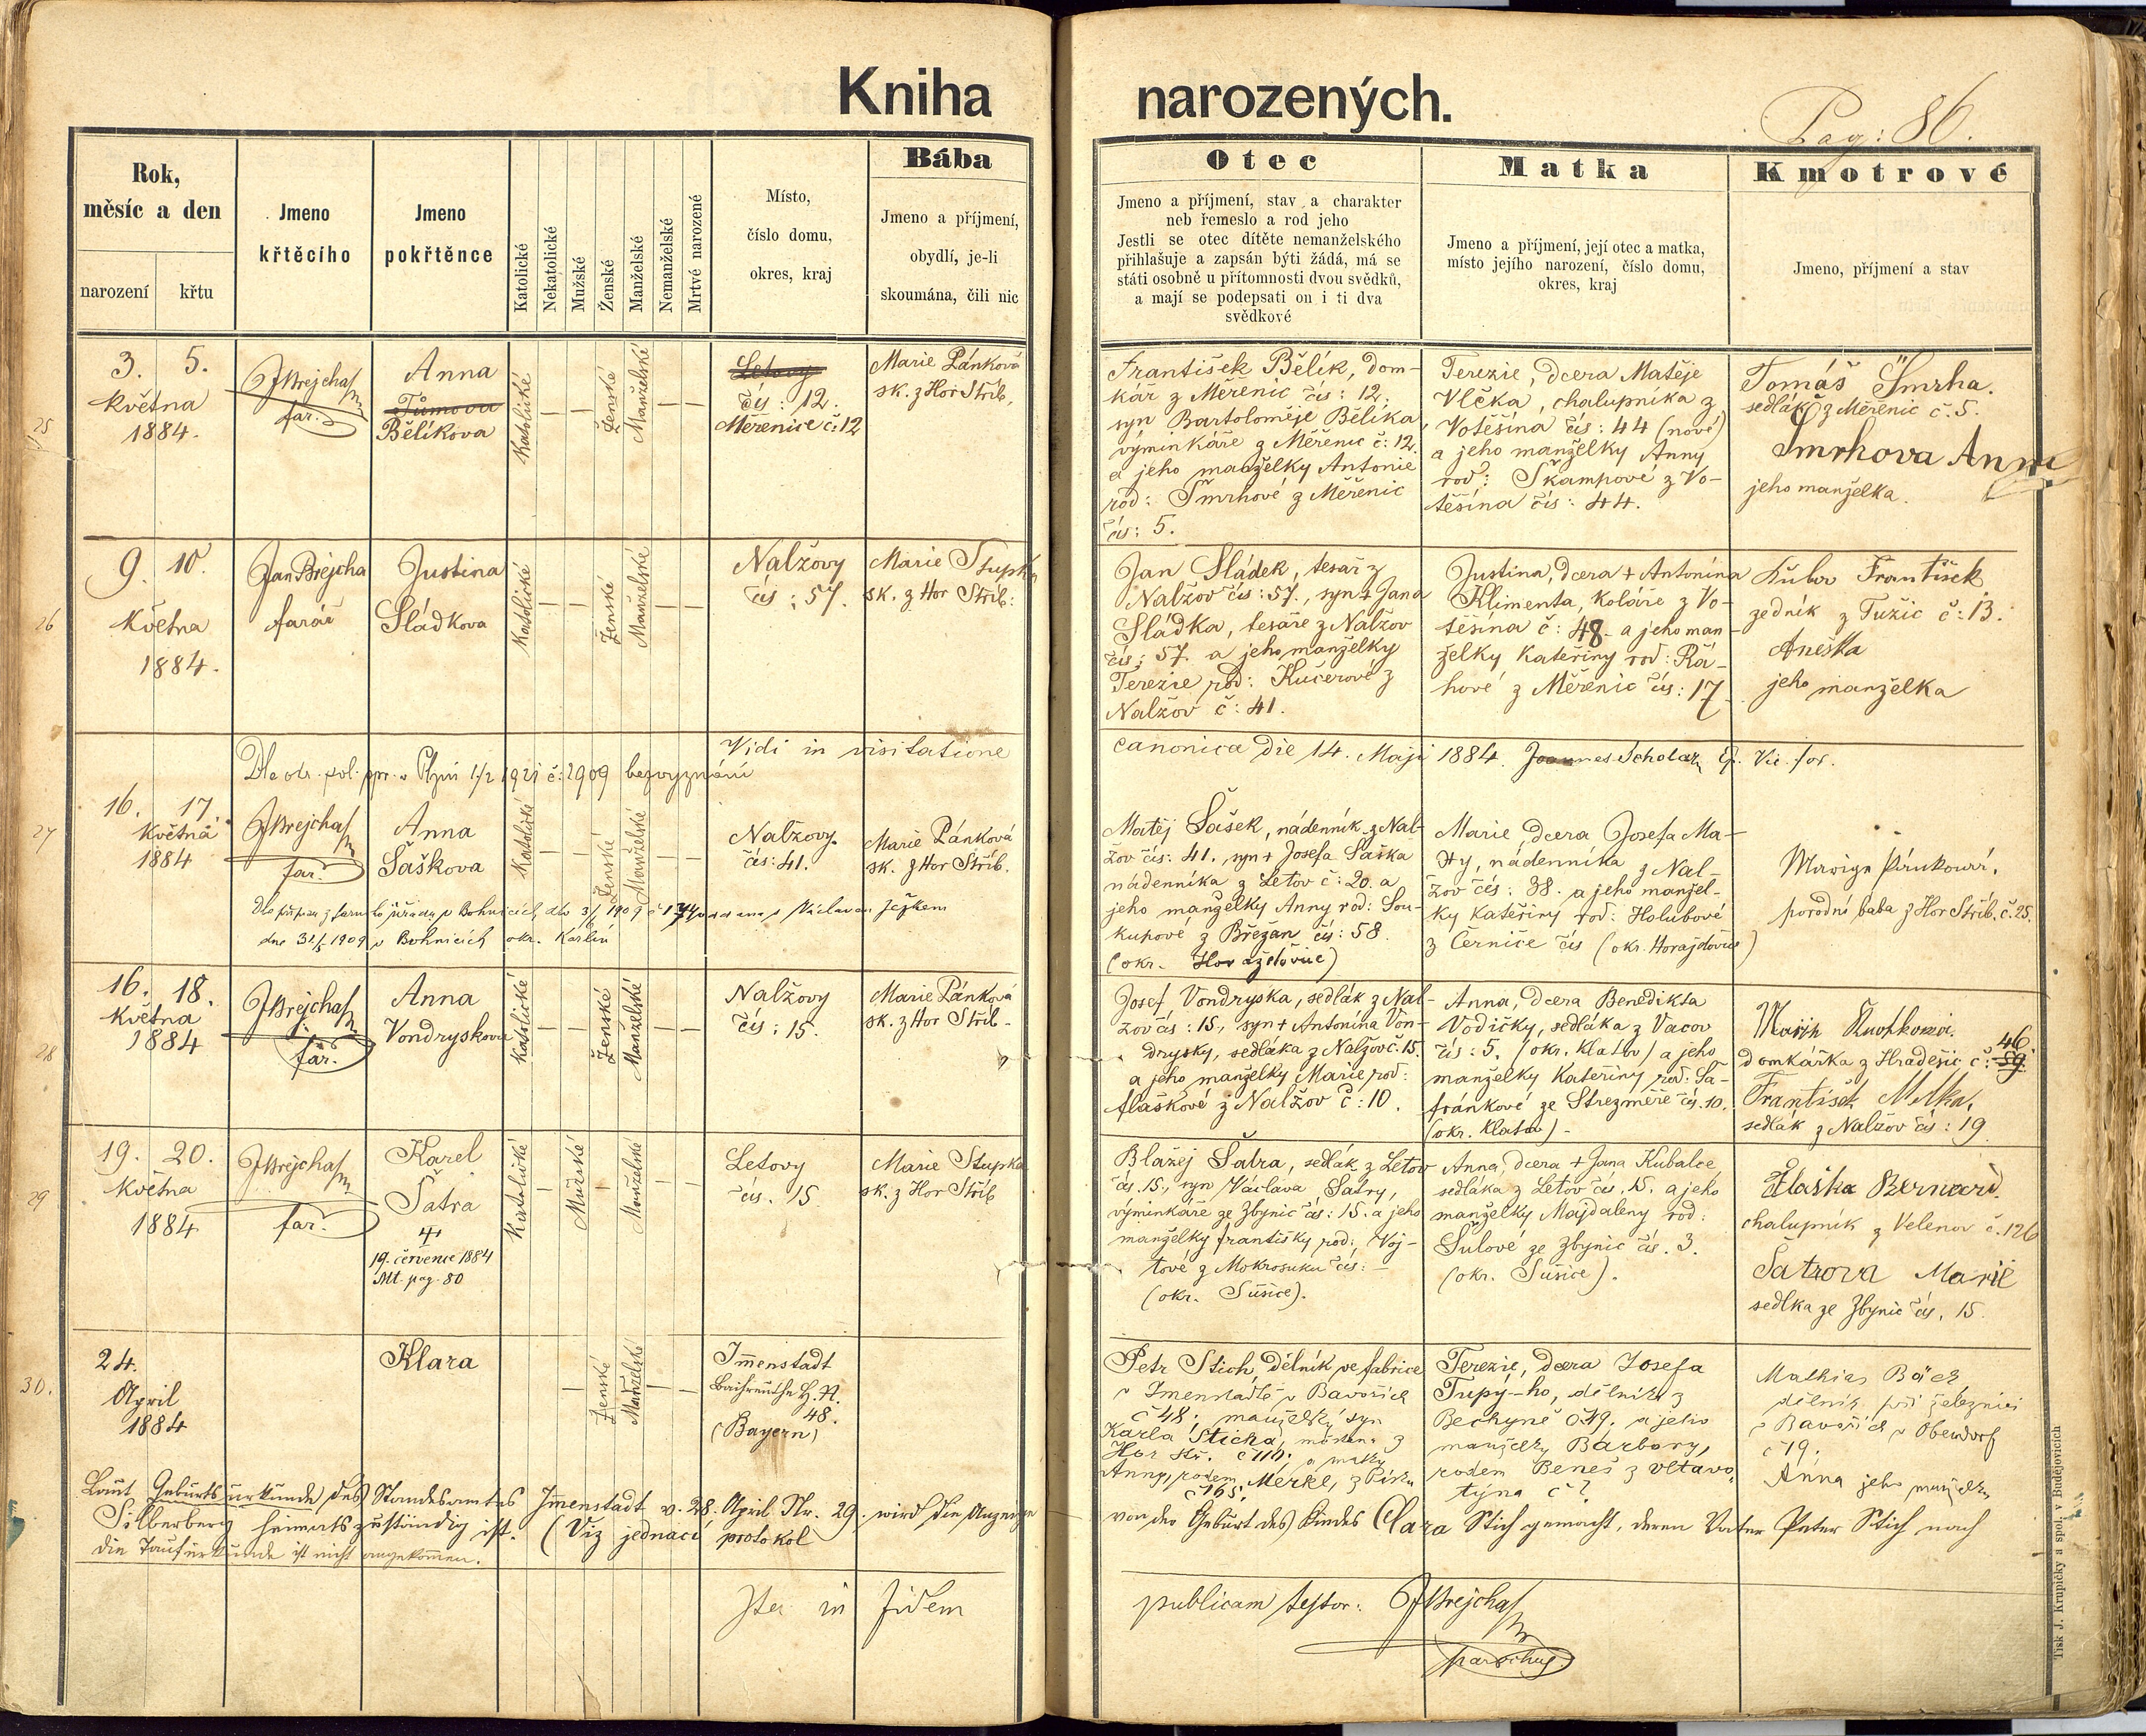 Kniha narozených.
Pag: 86.
Rok,
měsíc a den
narození
křtu
Jmeno
křtěcího
Jmeno
pokřtěnce
Katolické
Nekatolické
Mužské
Ženské
Manželské
Nemanželské
Mrtvé narozené
Místo,
číslo domu,
okres, kraj
Bába
Jmeno a příjmení,
obydlí, je-li
skoumána, čili nic
Otec
Jmeno a příjmení, stav a charakter
neb řemeslo a rod jeho
Jestli se otec dítěte nemanželského
přihlašuje a zapsán býti žádá, má se
státi osobně u přítomnosti dvou svědků,
a mají se podepsati on i ti dva
svědkové
Matka
Jmeno a příjmení, její otec a matka,
místo jejího narození, číslo domu,
okres, kraj
Kmotrové
Jmeno, příjmení a stav
25
3. 5.
května
1884.
JBrejcha
far.
Anna
Tůmova
Bělíkova
Katolické
Ženské
Manželské
Letovy
čís: 12.
Měřenice č: 12
Marie Pánková
zk. z Hor Stříb.
František Bělík, dom-
kář z Měřenic čís: 12.
syn Bartoloměje Bělíka
výminkáře z Měřenic č: 12.
a jeho manželky Antonie
rod: Šmrhové z Měřenic
čís: 5.
Terezie, dcera Matěje
Vlčka, chalupníka z
Votěšína čís: 44 (nové)
a jeho manželky Anny
rod: Škampové z Vo-
těšína čís: 44.
Tomáš Šmrha.
sedlák z Měřenic č. 5.
Šmrhova Anna
jeho manželka.
26
9. 10.
května
1884.
Jan Brejcha
farář
Justina
Sládkova
Katolické
Ženské
Manželské
Nalžovy
čís: 57.
Marie Stupka
zk. z Hor Stříb:
Jan Sládek, tesař z
Nalžov čís: 57., syn + Jana
Sládka, tesaře z Nalžov
čís: 57. a jeho manželky
Terezie rod: Kučerové z
Nalžov č: 41.
Justina, dcera + Antonína
Klimenta, koláře z Vo-
těšína č: 48. a jeho man-
želky Kateřiny rod: Rá-
hové z Měřenic čís: 17.
František
zedník z Tužic č: 13.
Aneška
jeho manželka
Vidi in visitatione canonica die 14. Maji 1884. Joannes Scholar, Vic. for.
1921 č: 2909 bezvyznání
27
16. 17.
května
1884
JBrejcha
far.
Anna
Šaškova
Katolické
Ženské
Manželské
Nalžovy.
čís: 41.
Marie Pánková
zk. z Hor Stříb.
Matěj Šašek, nádenník z Nal-
žov čís: 41. syn + Josefa Šaška
nádenníka z Letov č: 20. a
jeho manželky Anny rod: Sou-
kupové z Břežan čís: 58.
(okr. Horažďovice)
Marie dcera Josefa Ma-
ty, nádenníka z Nal-
žov čís: 38. a jeho manžel-
ky Kateřiny rod: Holubové
z Černíče čís (okr. Horažďovice)
porodní baba z Hor Stříb. č. 25.
v Bohnicích Václavem Ježkem
dne 31/5 1909 v Bohnicích okr. Karlín
28
16. 18.
května
1884
JBrejcha
far.
Anna
Vondryskova
Katolické
Ženské
Manželské
Nalžovy
čís: 15.
Marie Pánková
zk. z Hor Stříb.
Josef Vondryska, sedlák z Nal-
žov čís: 15, syn + Antonína Von-
drysky, sedláka z Nalžov č. 15.
a jeho manželky Marie rod:
Flaškové z Nalžov č: 10.
Anna, dcera Benedikta
Vodičky, sedláka z Vacov
čís: 5. (okr. Klatov) a jeho
manželky Kateřiny rod: Ša-
fránkové ze Strezměře čís. 10.
(okr. Klatov)
domkářka z Hradešic č: 59. 46.
František
sedlák z Nalžov čís: 19
29
19. 20.
května
1884
JBrejcha
far.
Karel
Šatra
19. července 1884
Mt. pag. 80
Katolické
Mužské
Manželské
Letovy
čís. 15
Marie Stupka
zk. z Hor Stříb
Blažej Šatra, sedlák z Letov
čís. 15., syn Václava Šatry,
výminkáře ze Zbynic čís: 15. a jeho
manželky Františky rod: Voj-
tové z Mokrosuku čís: –
(okr. Sušice).
Anna, dcera + Jana Kubalce,
sedláka z Letov čís. 15. a jeho
manželky Majdaleny rod:
Šulové ze Zbynic čís. 3.
(okr. Sušice).
Flaška Bernard.
chalupník z Velenov č. 126
Šatrova Marie
sedlka ze Zbynic čís. 15.
30.
24.
April
1884
Klara
Ženské
Manželské
Immenstadt
48.
(Bayern)
Petr Stich, dělník ve fabrice
v Imenstadtě v Bavořích
č 48; manželský syn
Karla Sticha, z
Hor Stř. č 116; a matky
Anny, rodem Merkl, z Písku
č 165;
Terezie, dcera Josefa
Tupý-ho, dělníka z
Bechyně č 79. a jeho
manželky Barbory,
rodem Beneš z Vltavo-
týna č ?
Mathias
dělník při železnici
v Bavořích v Oberdorf
č 19.
Anna jeho manželka
Laut Geburtsurkunde des Standesamtes Immenstadt v. 28. April Nr. 29. wird die Anzeige von der Geburt des Kindes Clara Stich gemacht, deren Vater Peter Stich nach
Silberberg heimatszuständig ist. (Viz jednací protokol
Die Taufurkunde ist nicht angekommen.
Ita in fidem publicam testor: JBrejcha
parochus.
Tisk J. Krupičky a spol. v Budějovicích